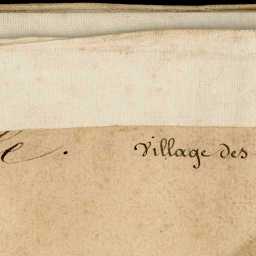 le. Village des